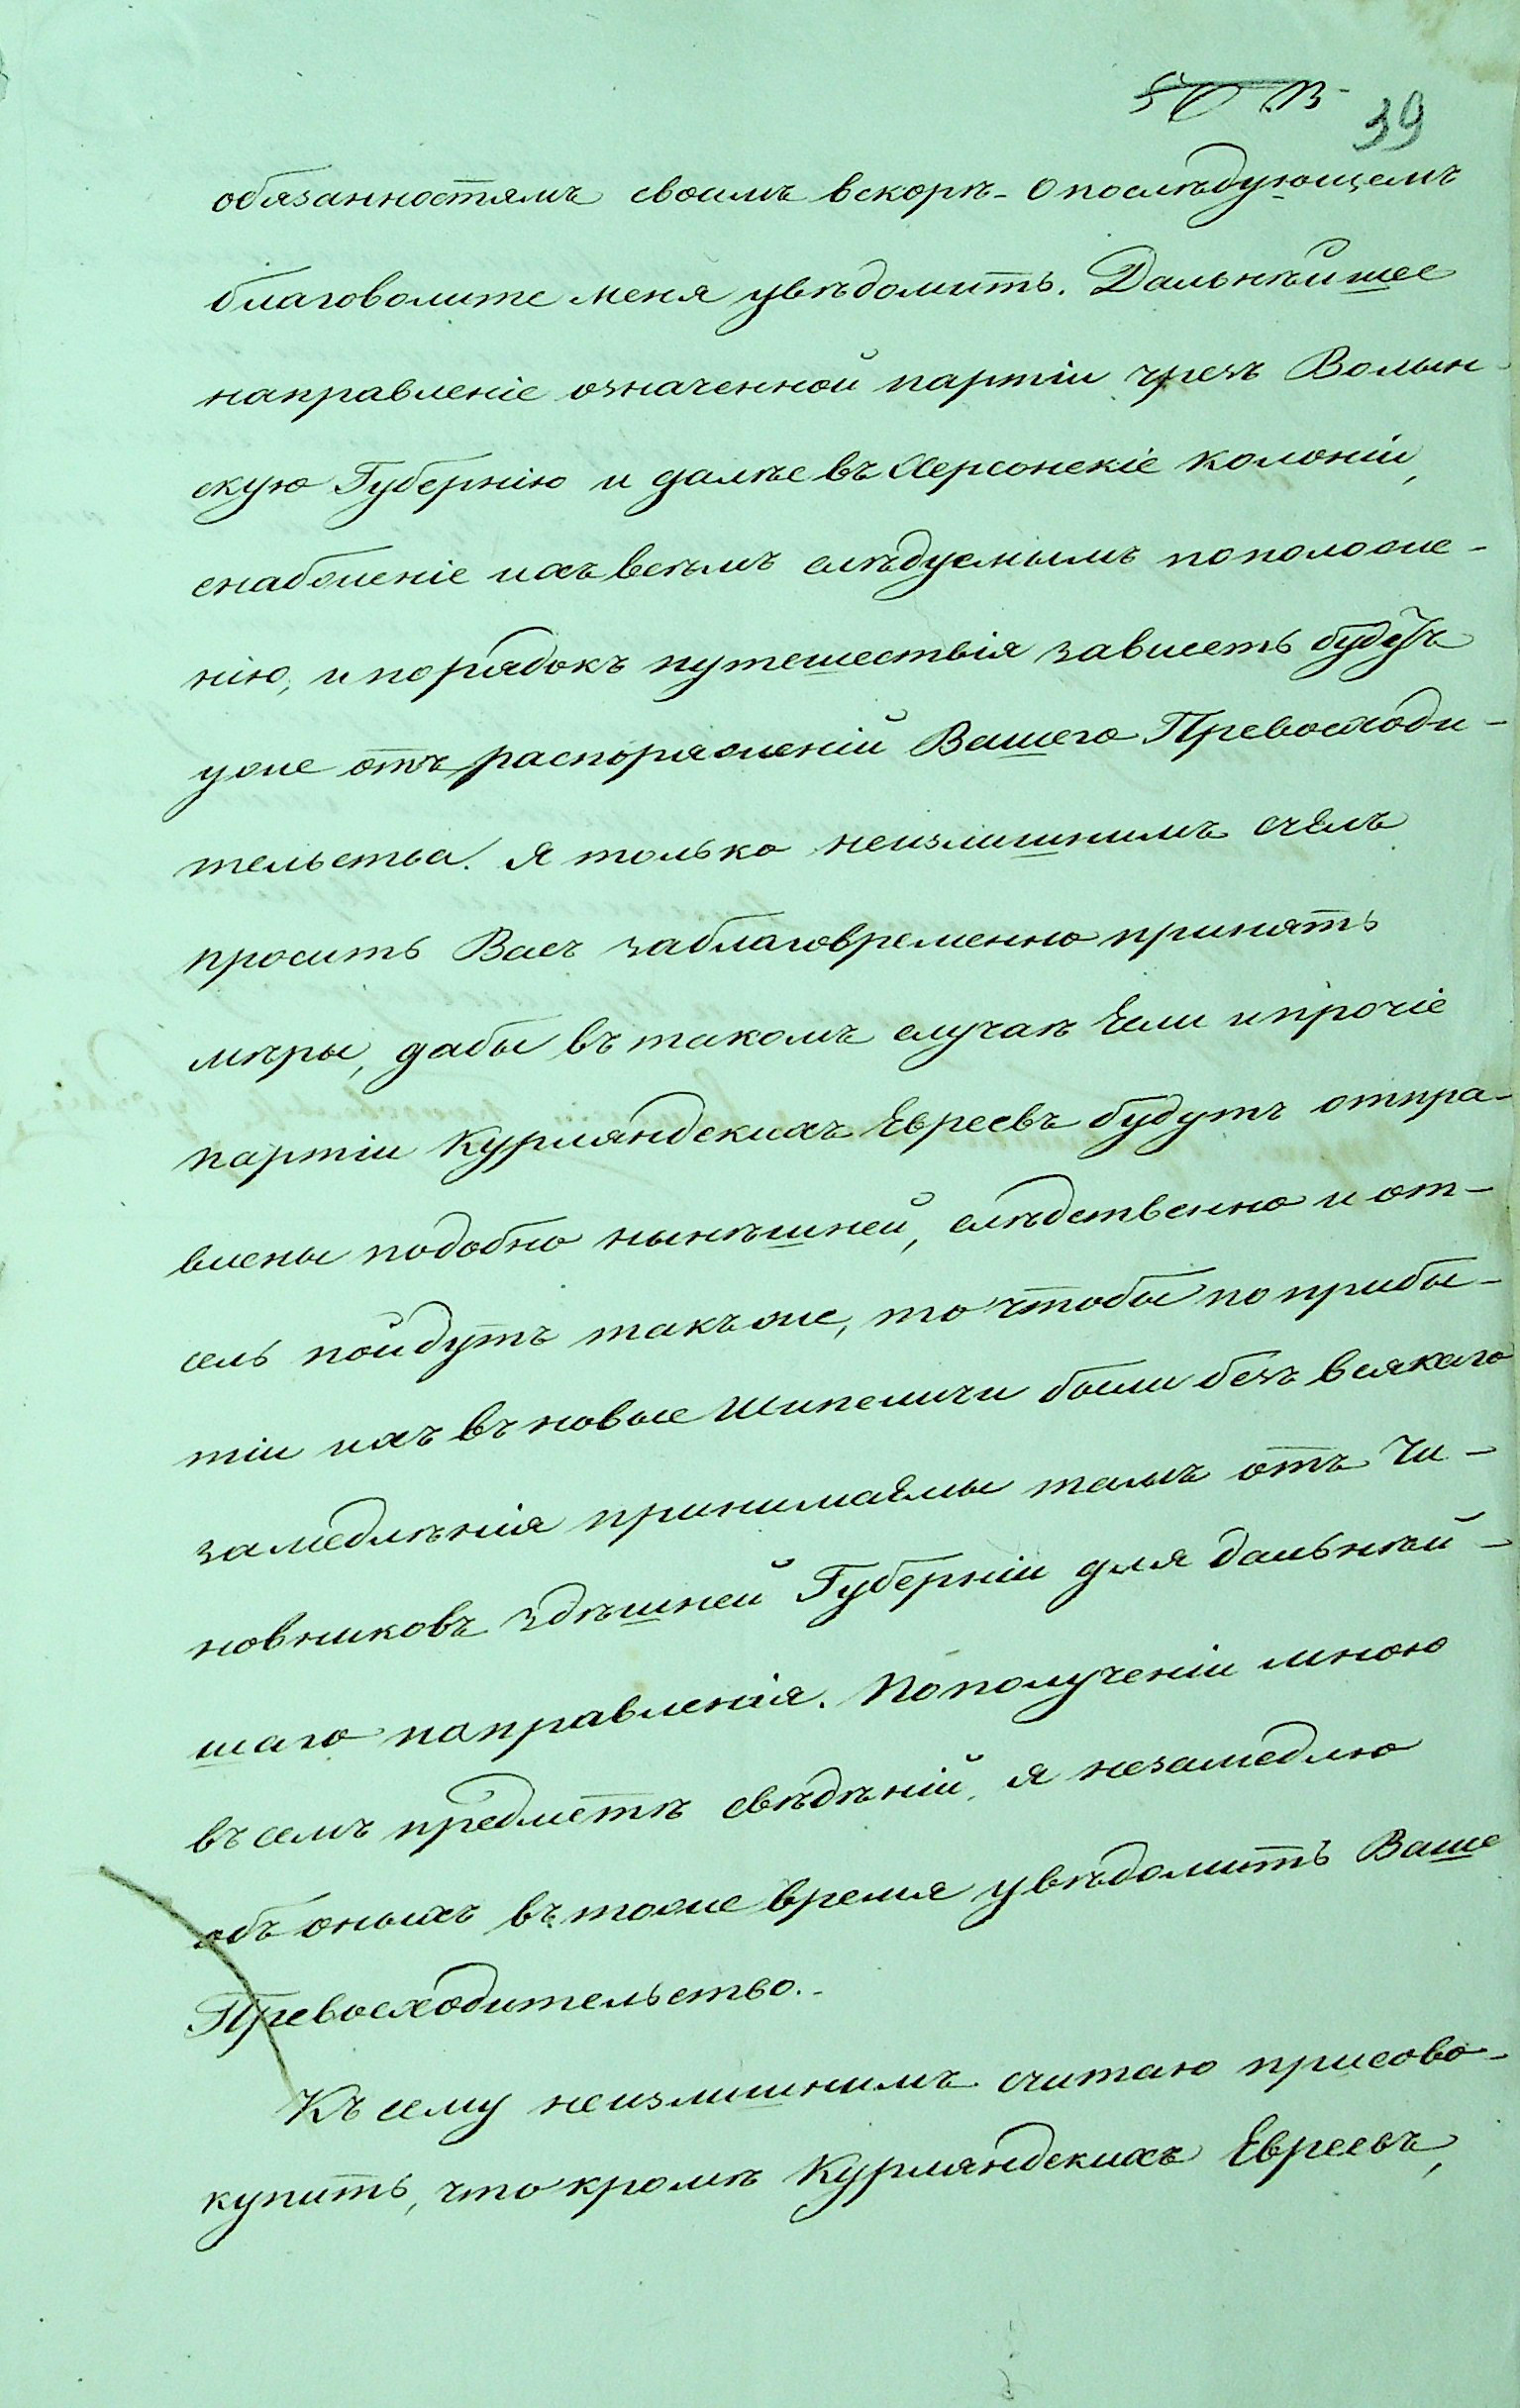 39
обязанностямъ своимъ вскорѣ - О послѣдующемъ
благоволите меня увѣдомить. Дальнѣйшее
направленіе означенной партіи чрезъ Волын-
скую Губернію и далѣе въ Херсонскіе колоніи,
снабженіе ихъ всѣмъ слѣдуемымъ по положе-
нію, и порядокъ путешествія зависеть будутъ
уже отъ распоряженій Вашего Превосходи-
тельства. Я только неизлишнимъ счелъ
просить Васъ заблаговременно принять
мѣры, дабы въ такомъ случаѣ Если и прочіе
партіи Курляндскихъ Евреевъ будутъ отпра-
влены подобно нынѣшней, слѣдственно и от-
сель пойдутъ такъ же, то чтобы по прибы-
тіи ихъ въ новые Шипеличи были безъ всякаго
замедлѣнія принимаемы тамъ отъ Чи-
новниковъ здѣшней Губерніи для дальнѣй-
шаго направленія. По полученіи мною
въ семъ предметѣ свѣдѣній, я незамедлю
объ оныхъ въ тоже время увѣдомить Ваше
Превосходительство. -
Къ сему неизлишнимъ считаю присово-
купить, что кромѣ Курляндскихъ Евреевъ,